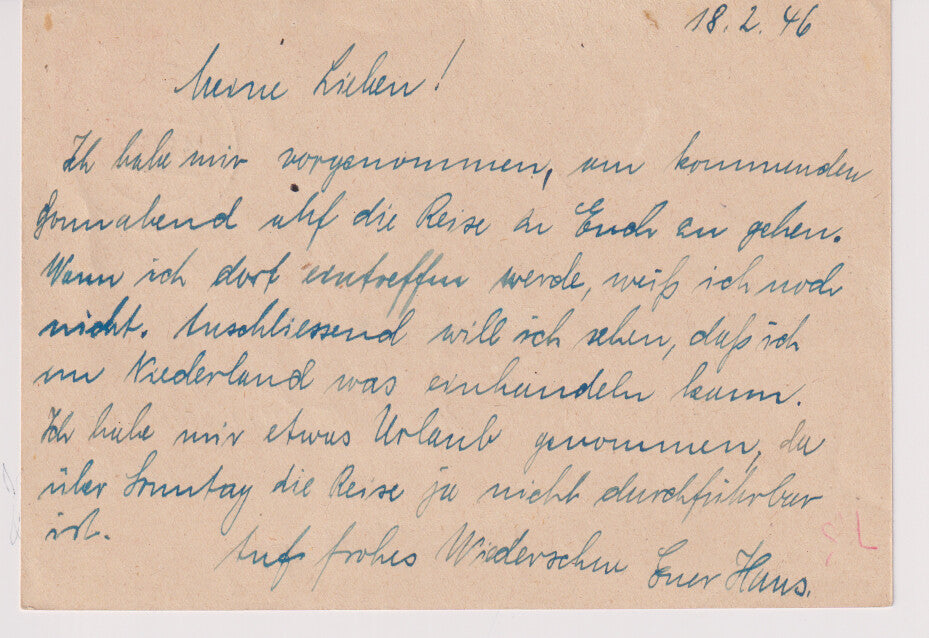 18.2.46
Meine Lieben!
Ich habe mir vorgenommen, am kommenden
Sonnabend auf die Reise zu Euch zu gehen.
Wann ich dort eintreffen werde, weiß ich noch
nicht. Anschliessend will ich sehen, daß ich
im Niederland was einhandeln kann.
Ich habe mir etwas Urlaub genommen, da
über Sonntag die Reise ja nicht durchführbar
ist.
Auf frohes Wiedersehen Euer Hans.